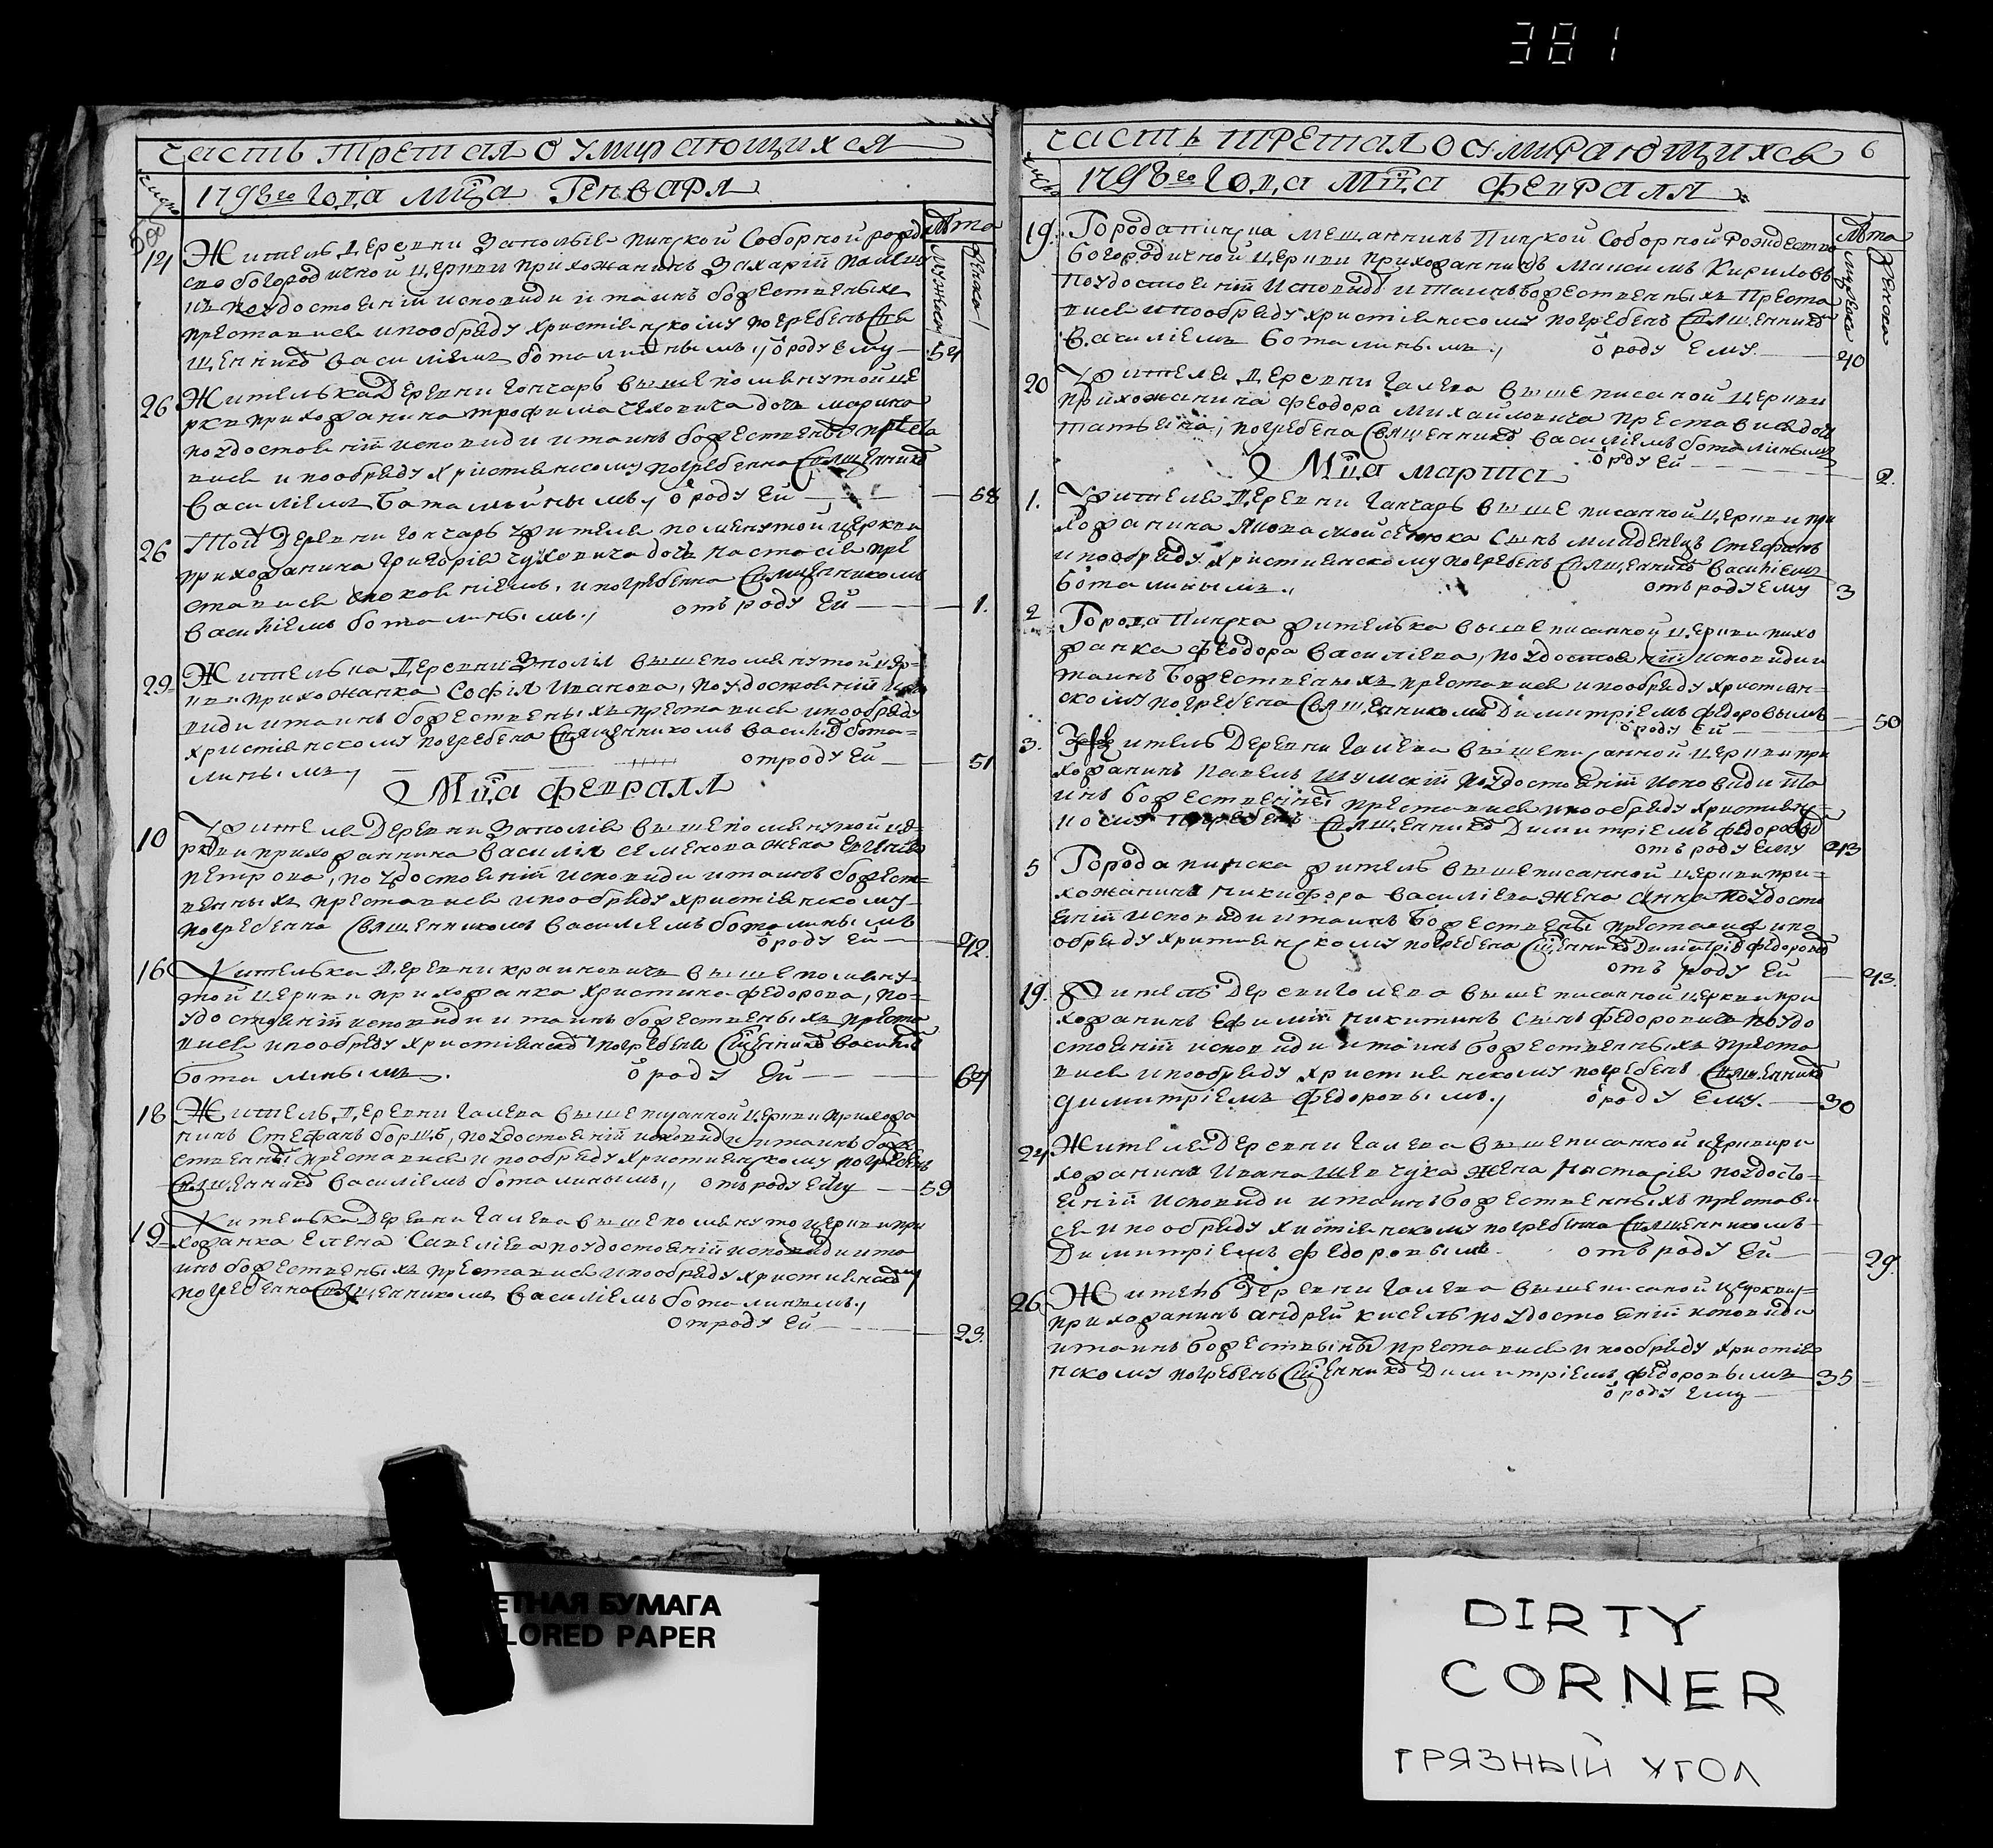 381
часть третая о умирающихся
число
1798го года мца Генваря
лѣта
мужеска
женска
14 Житель деревни Заполья пинской Соборной рожде
ство богородичной церкви прихожанинъ Захарій
по удостоеніи исповиди и таинъ божественыхъ
преставися и по обряду христіянскому погребенъ свя
щенникомъ василіемъ боталинымъ, ѿ роду ему 54
26 Жителька деревни Гончаръ вышепомянутой це
ркви прихожанина трофима доч марина
по удостоеніи исповиди и таинъ божественыхъ преста
вися и по обряду христіянскому погребенна священникомъ
василіемъ боталинымъ, ѿ роду ей 58
26 Той деревни Гончаръ жителя помянутой церкви
прихожанина григорія чуховича дочь настасія пре
ставися и погребенна священникомъ
василіемъ боталинымъ, отъ роду ей 1.
29 Жителька деревни Заполя вышепомянутой цер=
кви прихожанка Софія Иванова, по удостоеніи испо
види и таинъ божественыхъ преставися и по обряду
христіянскому погребена священникомъ василіемъ бота=
линымъ, отроду ей 51
Мца февраля
10 Жителя деревни Заполя вышепомянутой це=
ркви прихожаннина василія семенова жена
петрова, по удостоеніи исповиди и таинъ божест=
венныхъ преставися и по обряду христіянскому
погребенна священникомъ василіемъ боталинымъ
ѿ роду ей 42.
16 Жителька деревни краиновичъ вышепомяну=
той церкви прихожанка христина федорова, по=
удостоеніи исповиди и таинъ божественыхъ преста
вися и по обряду христіянскому погребена священникомъ василіемъ
боталинымъ. ѿ роду ей 67
18 Житель деревни Галева вышеписанной церкви прихожа
нинъ Стефанъ борщъ, по удостоеніи исповиди и таинъ боже
ственныхъ преставися и по обряду християнскому погребенъ
священникомъ василіемъ боталинымъ, отъ роду ему 59
19 Жителька деревни Галева вышепомянутой церкви при
хожанка Елена Савеліева по удостоеніи исповиди и та
инъ божественыхъ преставися и по обряду християнскому
погребенна священникомъ василіемъ боталинымъ,
отроду ей 23.
часть третая о умирающихся 6
число
1798го года мца февраля
лѣта
мужеска
женска
19. Города пинска мещаннинъ Пинской Соборной Рождество
богородичной церкви прихожаннинъ Максимъ Кириловъ
по удостоеніи исповиди и таинъ божественныхъ преста
вися и по обряду христіянскому погребенъ священникомъ
василіемъ боталинымъ, ѿ роду ему. 40
20 Жителя деревни Галева вышеписаной церкви
прихожанина феодора Михайловича преставися доч
татьяна, погребена священникомъ василіемъ боталинымъ
ѿ роду ей 2.
Мца марта
1. Жителя деревни Гончаръ вышеписанной церкви при
хожанина сынъ младенецъ Стефанъ
и по обряду християнскому погребенъ священникомъ василіемъ
боталинымъ, отъ роду ему 3
2 Города Пинска жителька вышеписанной церкви прихо
жанка феодора василіева, по удостоеніи исповиди и
таинъ божественыхъ преставися и по обряду християн=
скому погребена священникомъ димитріемъ федоровымъ
ѿ роду ей 50
3. Житель деревни Галева вышеписанной церкви при
хожанинъ павелъ шумскій по удостоеніи исповиди и та
инъ божественныхъ преставися и по обряду християнс=
кому погребенъ священникомъ димитріемъ федоровымъ
отъ роду ему 43
5 Города пинска житель вышеписанной церкви при=
хожанина никифора василіева жена Анна по удосто
еніи исповиди и таинъ божественны преставися и по
обряду християнскому погребена священникомъ димитріемъ федоровымъ
отъ роду ей 43.
19. Житель деревни Голева вышеписанной церкви при
хожанинъ Ефимій никитинъ сынъ федоровичъ по удо
стоеніи исповиди и таинъ божественныхъ преста
вися и по обряду християнскому погребенъ священникомъ
димитріемъ федоровымъ, ѿ роду ему. 30
24 Жителя деревни Галева вышеписанной церкви при
хожанина Ивана Шевчука жена Настасія по удосто=
еніи исповиди и таинъ божественныхъ престави
ся и по обряду хистіянскому погребенна священникомъ
Димитріемъ федоровымъ отъ роду ей 29.
26 Житель деревни Галева вышеписаной церкви=
прихожанинъ андрей кисель по удостоеніи исповиди
и таинъ божественны преставися и по обряду христія
нскому погребенъ священникомъ Димитріемъ федоровымъ 35
ѿ роду ему
ЕТНАЯ БУМАГА
LORED PAPER
DIRTY
CORNER
ГРЯЗНЫЙ УГОЛ